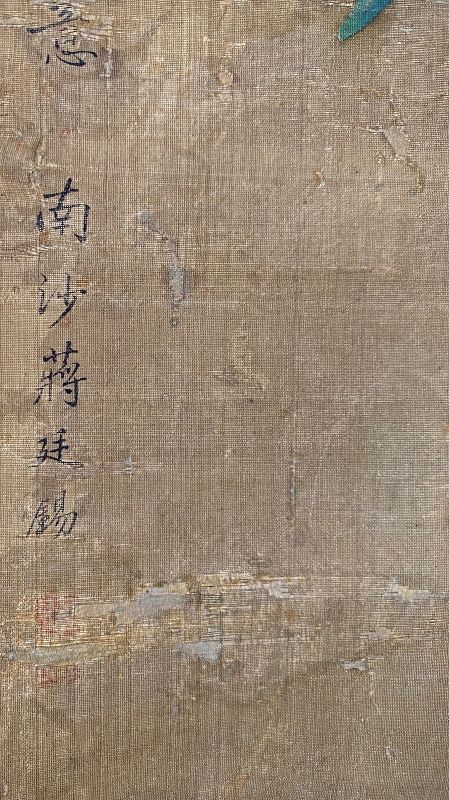 意 南沙蔣廷錫